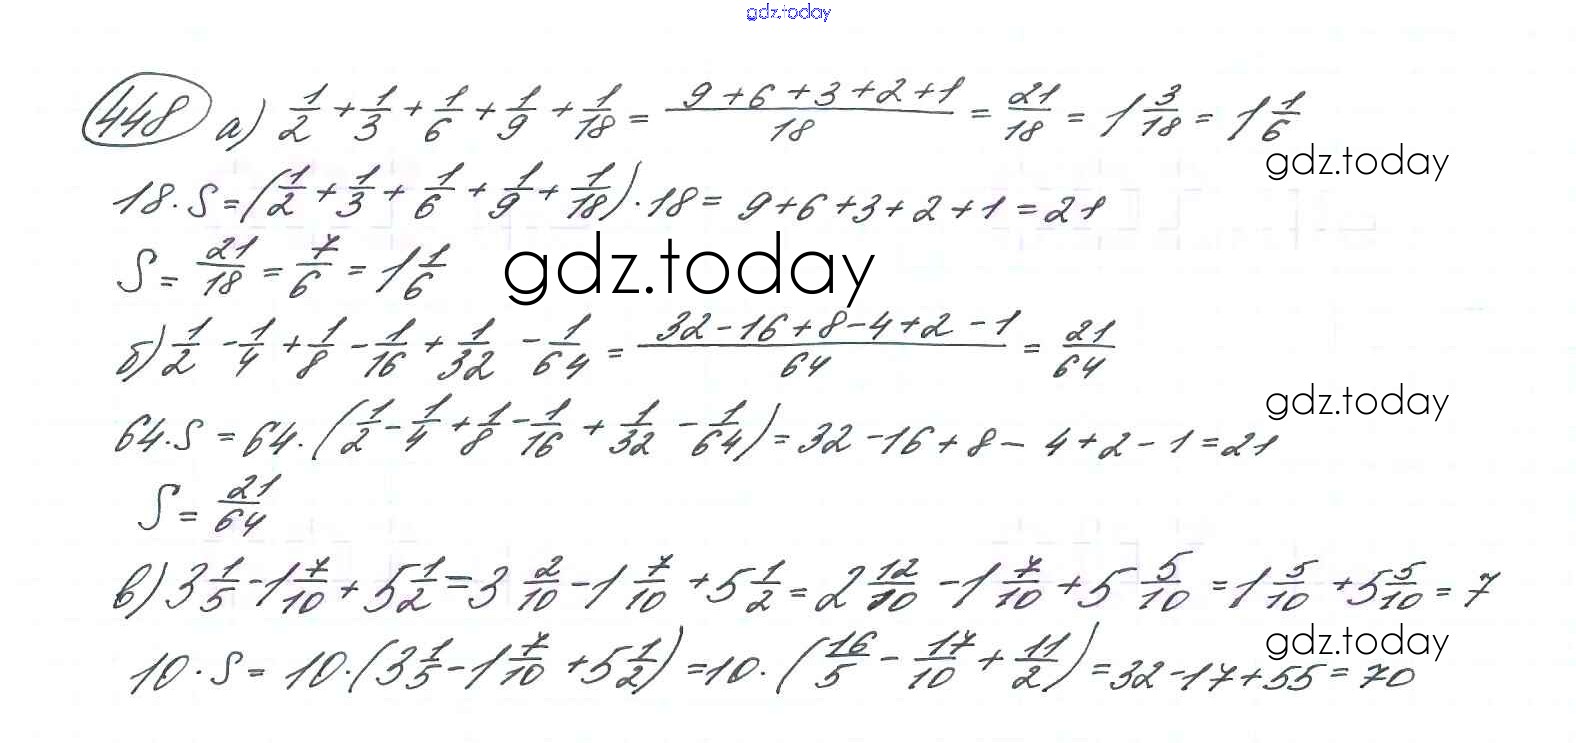 gdz.today
448 а) 1/2 + 1/3 + 1/6 + 1/9 + 1/18 = (9+6+3+2+1)/18 = 21/18 = 1 3/18 = 1 1/6
gdz.today
18·S = (1/2 + 1/3 + 1/6 + 1/9 + 1/18)·18 = 9+6+3+2+1 = 21
S = 21/18 = 7/6 = 1 1/6
gdz.today
б) 1/2 - 1/4 + 1/8 - 1/16 + 1/32 - 1/64 = (32-16+8-4+2-1)/64 = 21/64
gdz.today
64·S = 64·(1/2 - 1/4 + 1/8 - 1/16 + 1/32 - 1/64) = 32-16+8-4+2-1 = 21
S = 21/64
в) 3 1/5 - 1 7/10 + 5 1/2 = 3 2/10 - 1 7/10 + 5 1/2 = 2 12/10 - 1 7/10 + 5 5/10 = 1 5/10 + 5 5/10 = 7
gdz.today
10·S = 10·(3 1/5 - 1 7/10 + 5 1/2) = 10·(16/5 - 17/10 + 11/2) = 32-17+55 = 70